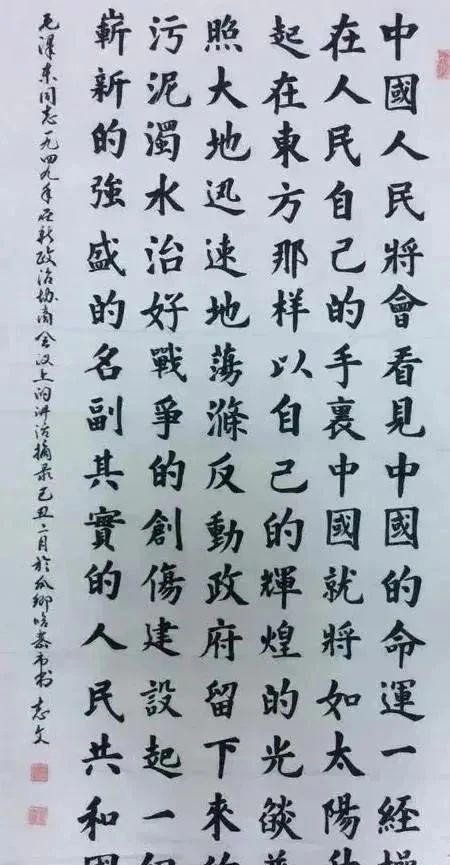 中國人民將會看見中國的命運一經操
在人民自己的手裏中國就將如太陽
起在東方那樣以自己的輝煌的光燄
照大地迅速地蕩滌反動政府留下來的
污泥濁水治好戰爭的創傷建設起一個
嶄新的強盛的名副其實的人民共和國
毛澤東同志一九四九年在新政治协商会议上的讲话摘录己丑二月於书 志文